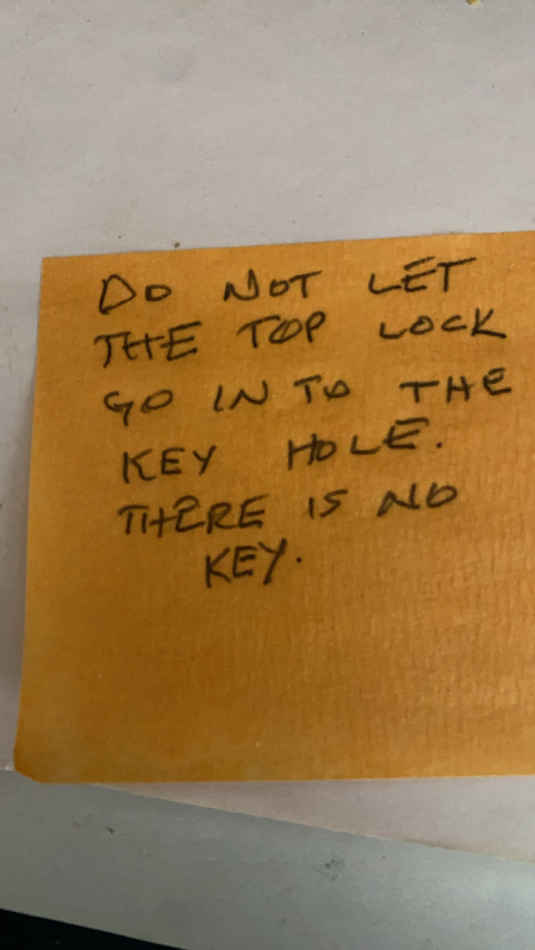 DO NOT LET
THE TOP LOCK
GO IN TO THE
KEY HOLE.
THERE IS NO
KEY.